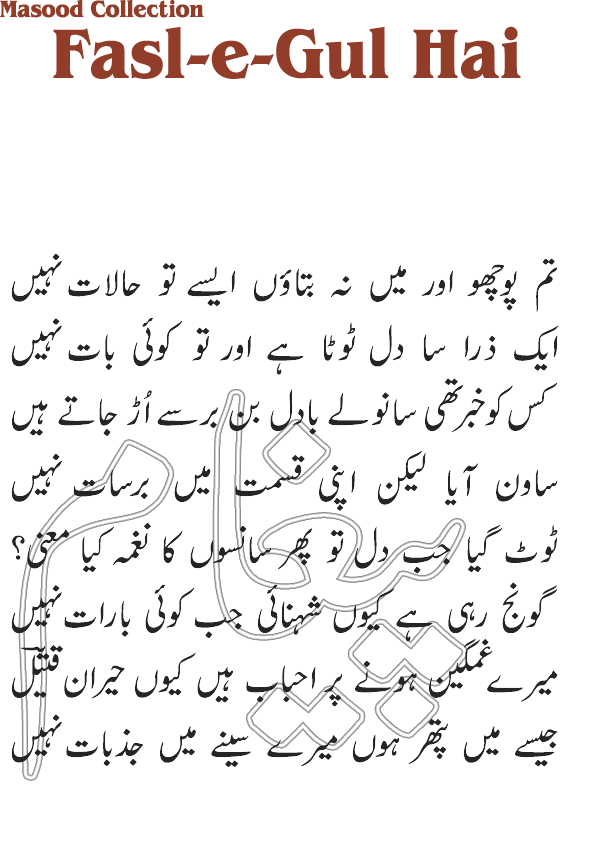 Masood Collection
Fasl-e-Gul Hai
تم پوچھو اور میں نہ بتاؤں ایسے تو حالات نہیں
ایک ذرا سا دل ٹوٹا ہے اور تو کوئی بات نہیں
کس کو خبر تھی سانولے بادل بن برسے اُڑ جاتے ہیں
ساون آیا لیکن اپنی قسمت میں برسات نہیں
ٹوٹ گیا جب دل تو پھر سانسوں کا نغمہ کیا معنی؟
گونج رہی ہے کیوں شہنائی جب کوئی بارات نہیں
میرے غمگین ہونے پر احباب ہیں کیوں حیران قتیلؔ
جیسے میں پتھر ہوں میرے سینے میں جذبات نہیں
پیغام